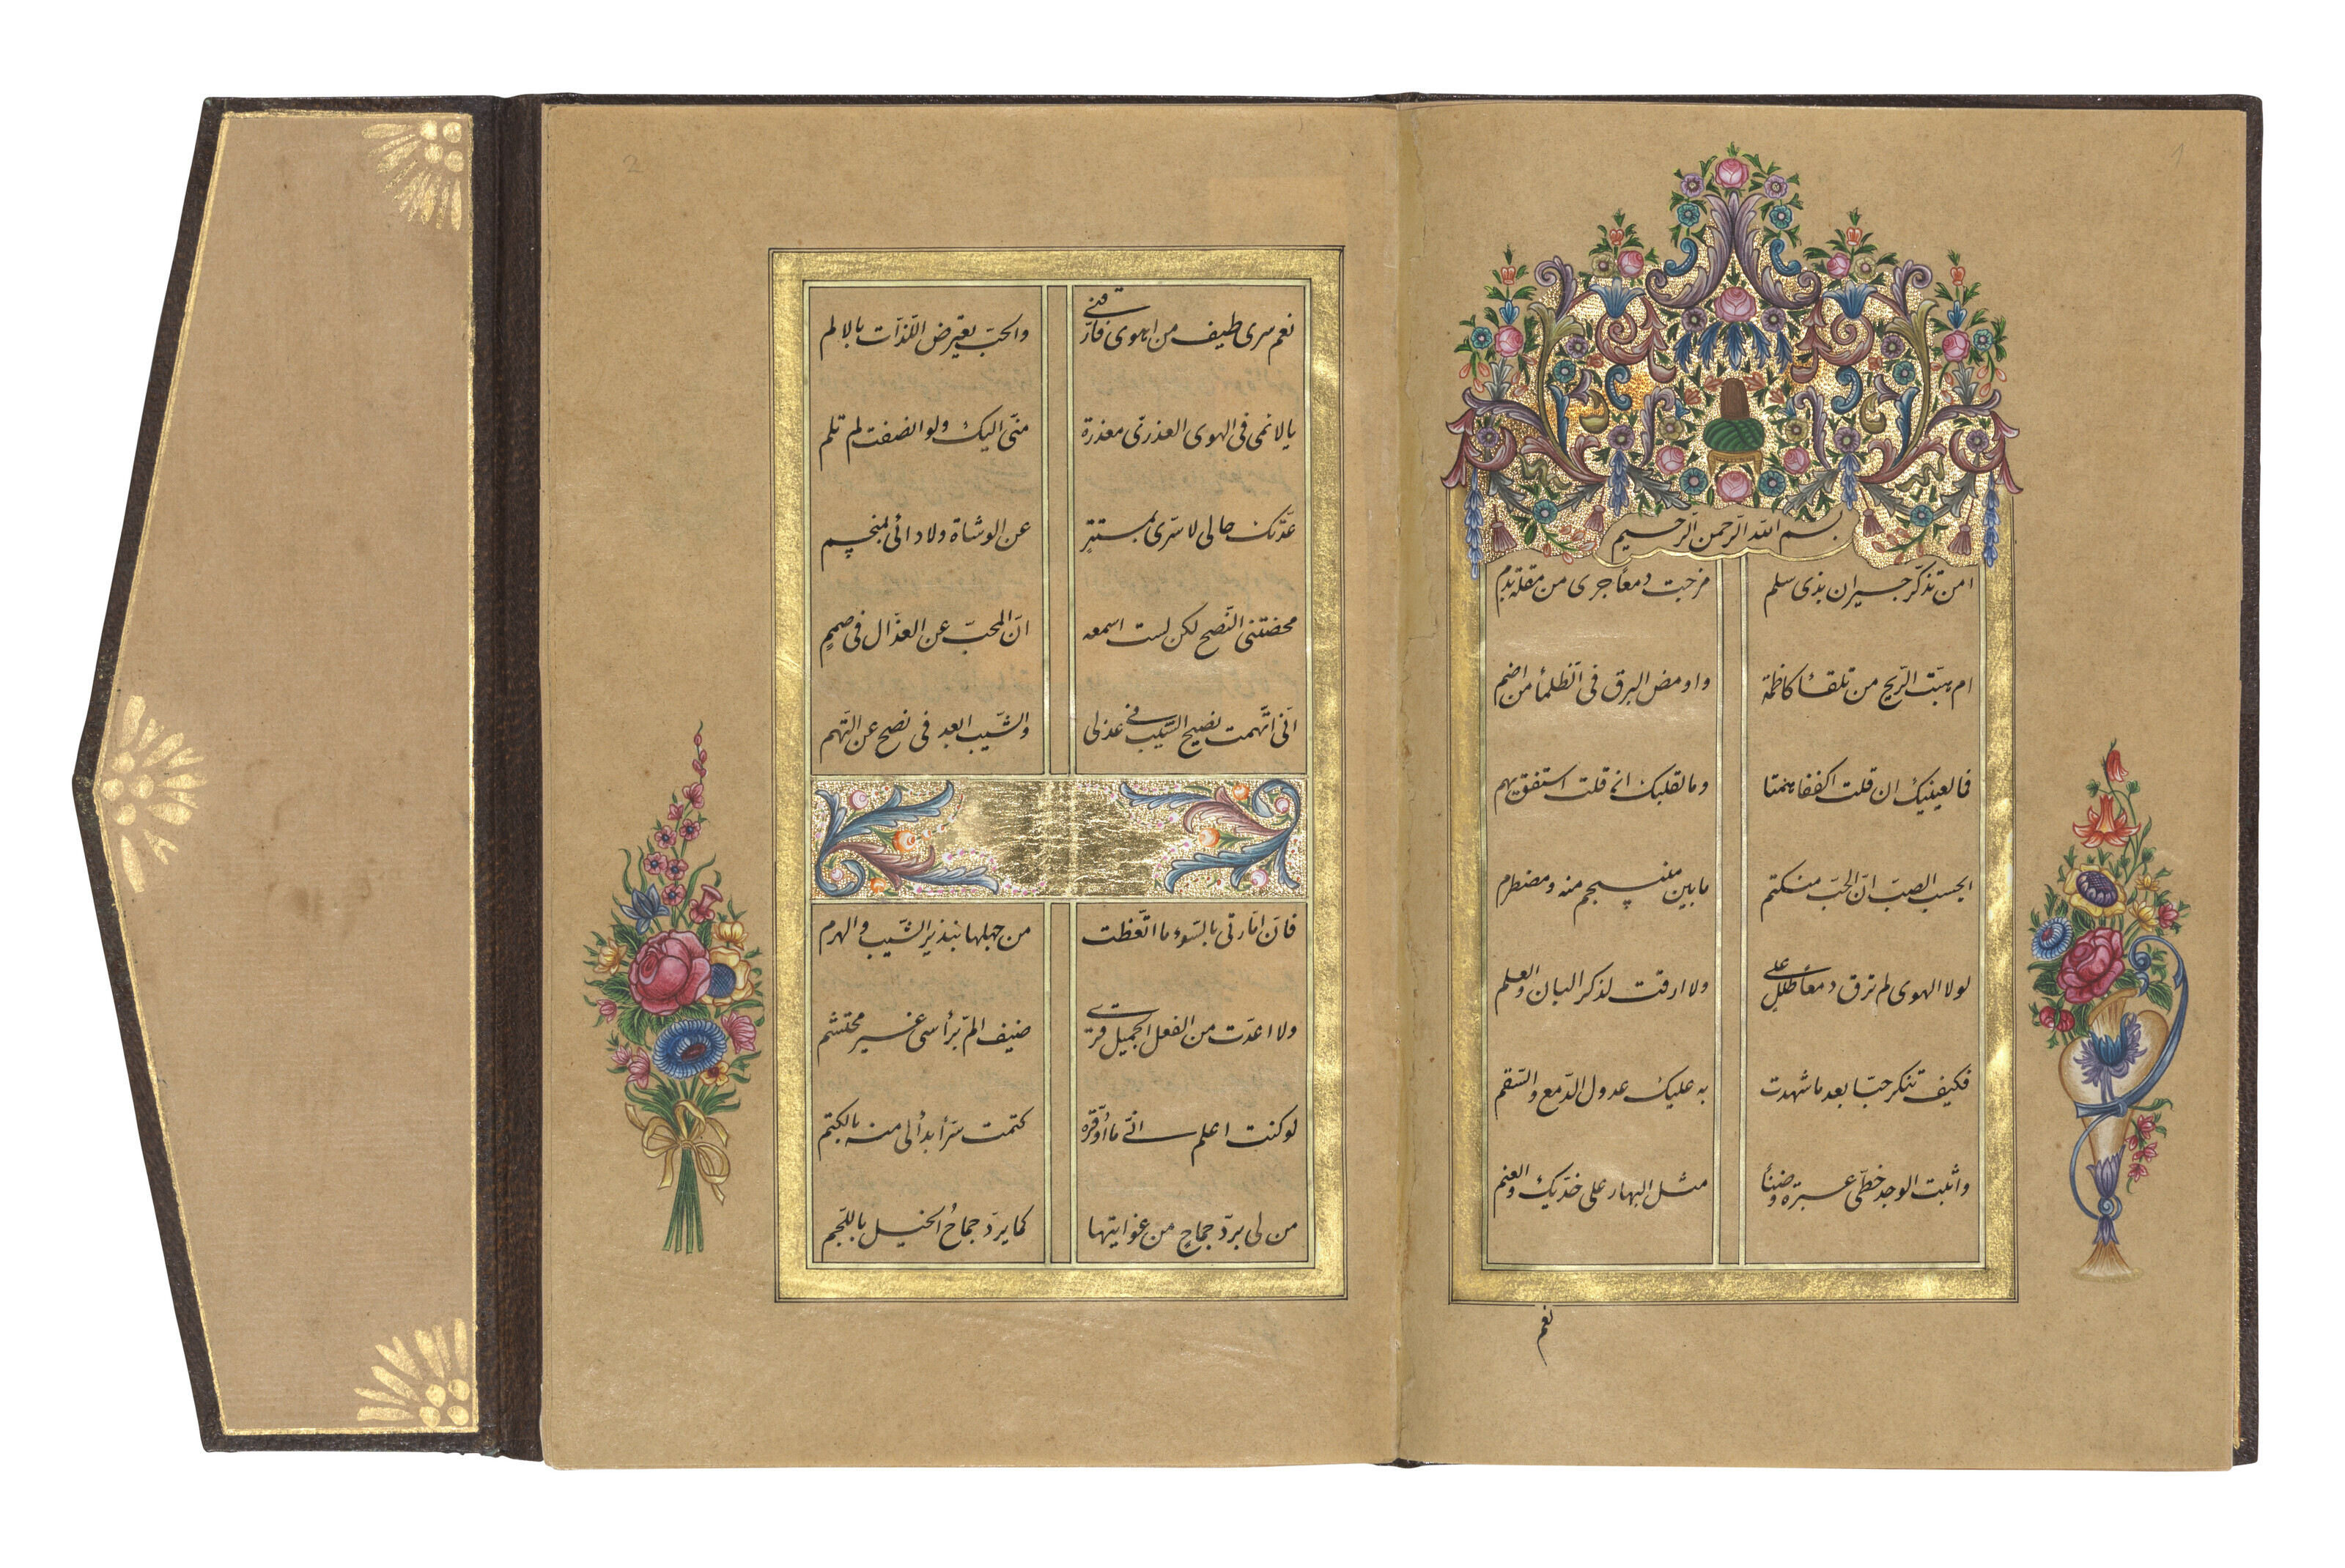 1
بسم الله الرّحمن الرّحيم
امن تذكّر جيران بذى سلم مزجت دمعا جرى من مقلة بدم
ام هبّت الرّيح من تلقاء كاظمة واومض البرق فى الظلماء من اضم
فما لعينيك ان قلت اكففا همتا وما لقلبك ان قلت استفق يهم
ايحسب الصبّ انّ الحبّ منكتم ما بين منسجم منه ومضطرم
لولا الهوى لم ترق دمعا على طلل ولا ارقت لذكر البان والعلم
فكيف تنكر حبّا بعد ما شهدت به عليك عدول الدّمع والسّقم
واثبت الوجد خطّى عبرة وضنا مثل البهار على خدّيك والعنم
نعم
2
نعم سرى طيف من اهوى فارّقنى والحبّ يعترض اللّذات بالالم
يا لائمى فى الهوى العذرىّ معذرة منّى اليك ولو انصفت لم تلم
عدّتك حالى لا سرّى بمستتر عن الوشاة ولا دائى بمنحسم
محضتنى النّصح لكن لست اسمعه انّ المحبّ عن العذّال فى صمم
انّى اتّهمت نصيح الشّيب فى عذلى والشّيب ابعد فى نصح عن التّهم
فانّ امّارتى بالسّوء ما اتّعظت من جهلها بنذير الشّيب والهرم
ولا اعدّت من الفعل الجميل قرى ضيف المّ برأسى غير محتشم
لو كنت اعلم انّى ما اوقّره كتمت سرّا بدا لى منه بالكتم
من لى بردّ جماح من غوايتها كما يردّ جماح الخيل باللّجم